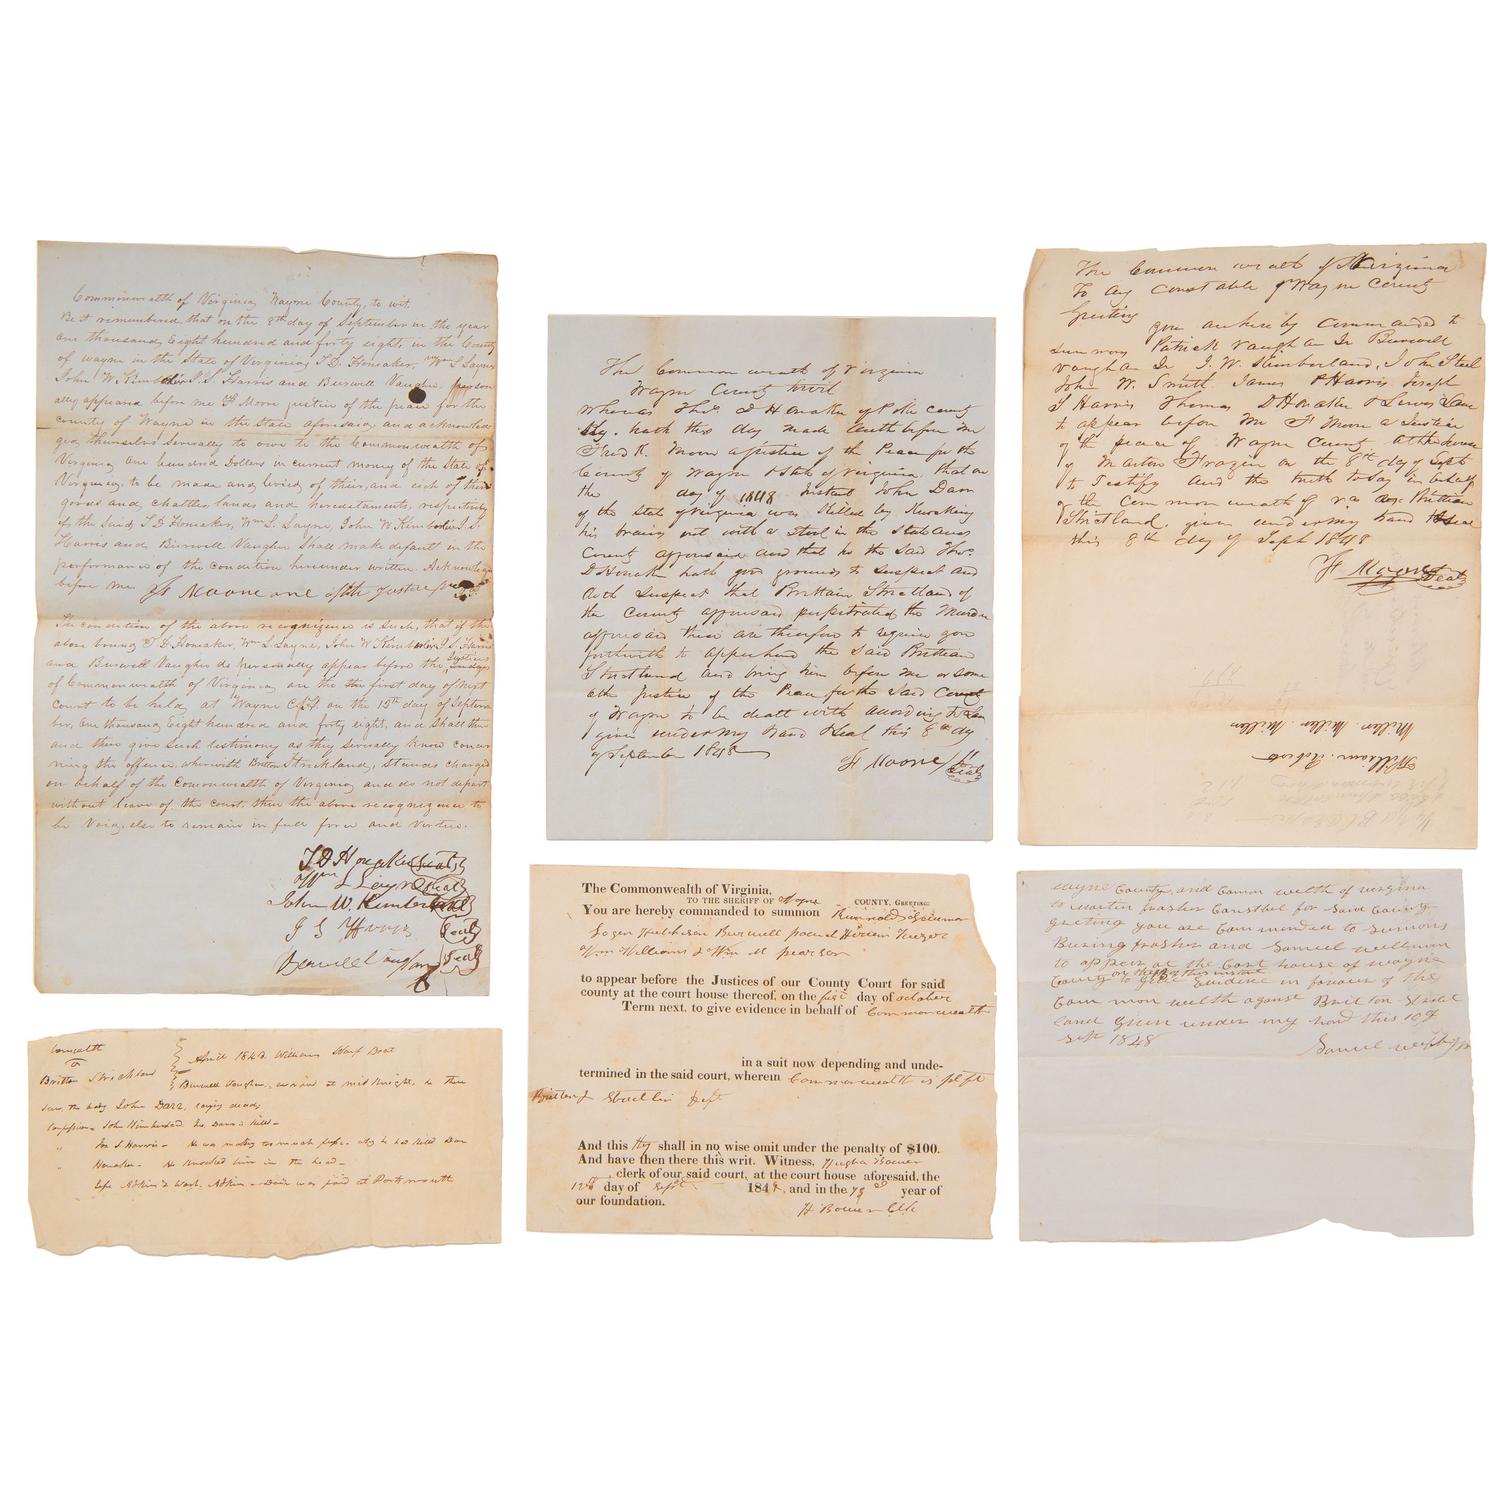 Commonwealth of Virginia, Wayne County, to wit.
Be it remembered that on the 8th day of September in the year
one thousand Eight hundred and forty eight, in the County
of Wayne in the State of Virginia, T. D. Honaker, Wm L Layne
John W. Kimberlin J. S. Harris and Burwell Vaughn, person
ally appeared before me F Moore justice of the peace for the
county of Wayne in the State aforesaid and acknowled
ged themselves severally to owe to the Commonwealth of
Virginia one hundred Dollars in current money of the State of
Virginia, to be made and levied of their, and each of their
goods and chattles, lands and hereditaments, respectively
if the said, T. D. Honaker, Wm L. Layne, John W. Kimberlin J. S.
Harris and Burwell Vaughn Shall make defant in the
performance of the condition hereunder written. Acknowledged
before me F Moore one of the Justice
The condition of the above recognizence is such, that if the
above bound T. D. Honaker, Wm L Layne, John W Kimberlin J. S. Harris
and Burwell Vaughn do personally appear before the Justices
of Commonwealth of Virginia on the the first day of next
Court to be held at Wayne C. H. on the 15th day of Septem
ber, One thousand Eight hundred and forty eight, and shall then
and there give such testimony as they severally know concer
ning the offence, wherewith Britton Strickland, stands charged
on behalf of the Comonwealth of Virginia and do not depart
without leave of the court, then the above recognizence to
be Void, else to remain in full force and Virtue.
T D Honaker Seal
Wm L Layne Seal
John W. Kimberlin Seal
J S Harris Seal
Burwell Vaughn Seal
The Common wealth of Virginia
Wayne County towit
Whereas Thos. D Honaker of county
hath this day made oath before me
Fred R. Moore a justice of the Peace for the
County of Wayne & State of Virginia, that on
the day of 1848 Instant John Darr
of the State of Virginia was Killed by Knocking
his brains out with a in the State and
County afforsaid and that he the said Thos.
D Honaker hath good grounds to suspect and
doth suspect that Brittain Strickland of
the County afforsaid perpetrated the Murder
afforsaid these are therefore to require you
forthwith to apprehend the said Brittian
Strickland and bring him before me or some
other Justice of the Peace for the said County
of Wayne to be dealt with according to Law
given under my hand & Seal this 8th day
of September 1848
F Moore Seal
The Common wealth of Virginia
To any constable of Wayne County
Greeting
you are hereby commanded to
summons Patrick Vaughan Burwell
Vaughan J. W. Kimberland, John Steel
John W. Smith James P Harris Joseph
S Harris Thomas D Honaker & Lewis
to appear before Me F Moore a Justice
of the peace of Wayne County At the house
of Martin Frazier on the 8th day of Sept
to Testify and the truth to say in behalf
of the Common wealth of va agt Brittian
Strictland. given under my hand & seal
this 8th day of Sept 1848
F Moore Seal
William Roberts
Miller. Miller. Miller
Britton Strickland
April 1848 Williams Wharf Boat
Burwell Vaughn, at mid Knight, he then
saw the body John Darr,
Confession John Kimberland he Darr is Kill
Jos. S. Harris - He was making too much he had Killed Dar
Honaker - He Knocked him in the head
at Portsmouth
The Commonwealth of Virginia,
TO THE SHERIFF OF Wayne COUNTY, GREETING:
You are hereby commanded to summon
Logan Hutchison Burwell
Wm Williams & Wm M pearson
to appear before the Justices of our County Court for said
county at the court house thereof, on the first day of october
Term next, to give evidence in behalf of Commonwealth
in a suit now depending and unde-
termined in the said court, wherein Commonwealth is plft
deft
And this they shall in no wise omit under the penalty of $100.
And have then there this writ. Witness, Hugh Bowen
, clerk of our said court, at the court house aforesaid, the
12th day of Sept 1848, and in the 73d year of
our foundation.
H Bowen Clk
Wayne County and Comon welth of virginia
to martin frasher Consthel for Said County
greting you are Commended to Sumons
frasher and Samuel wellman
to appear at the Cort house of wayne
County on the 13 of this instant
to give Evidence in favour of the
Com mon welth aganst Brit ton Strict
land given under my hand this 10 of
Sept 1848
Samuel